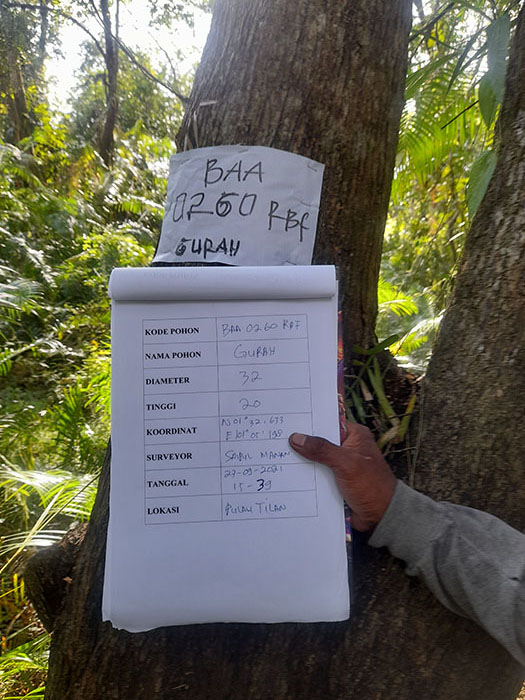 BAA
0260 RBF
GURAH
KODE POHON BAA 0260 RBF
NAMA POHON GURAH
DIAMETER 32
TINGGI 20
KOORDINAT N01°42.673
E101°05'198
SURVEYOR SABIL MANAN
TANGGAL 27-09-2021
15-39
LOKASI PULAU TILAN